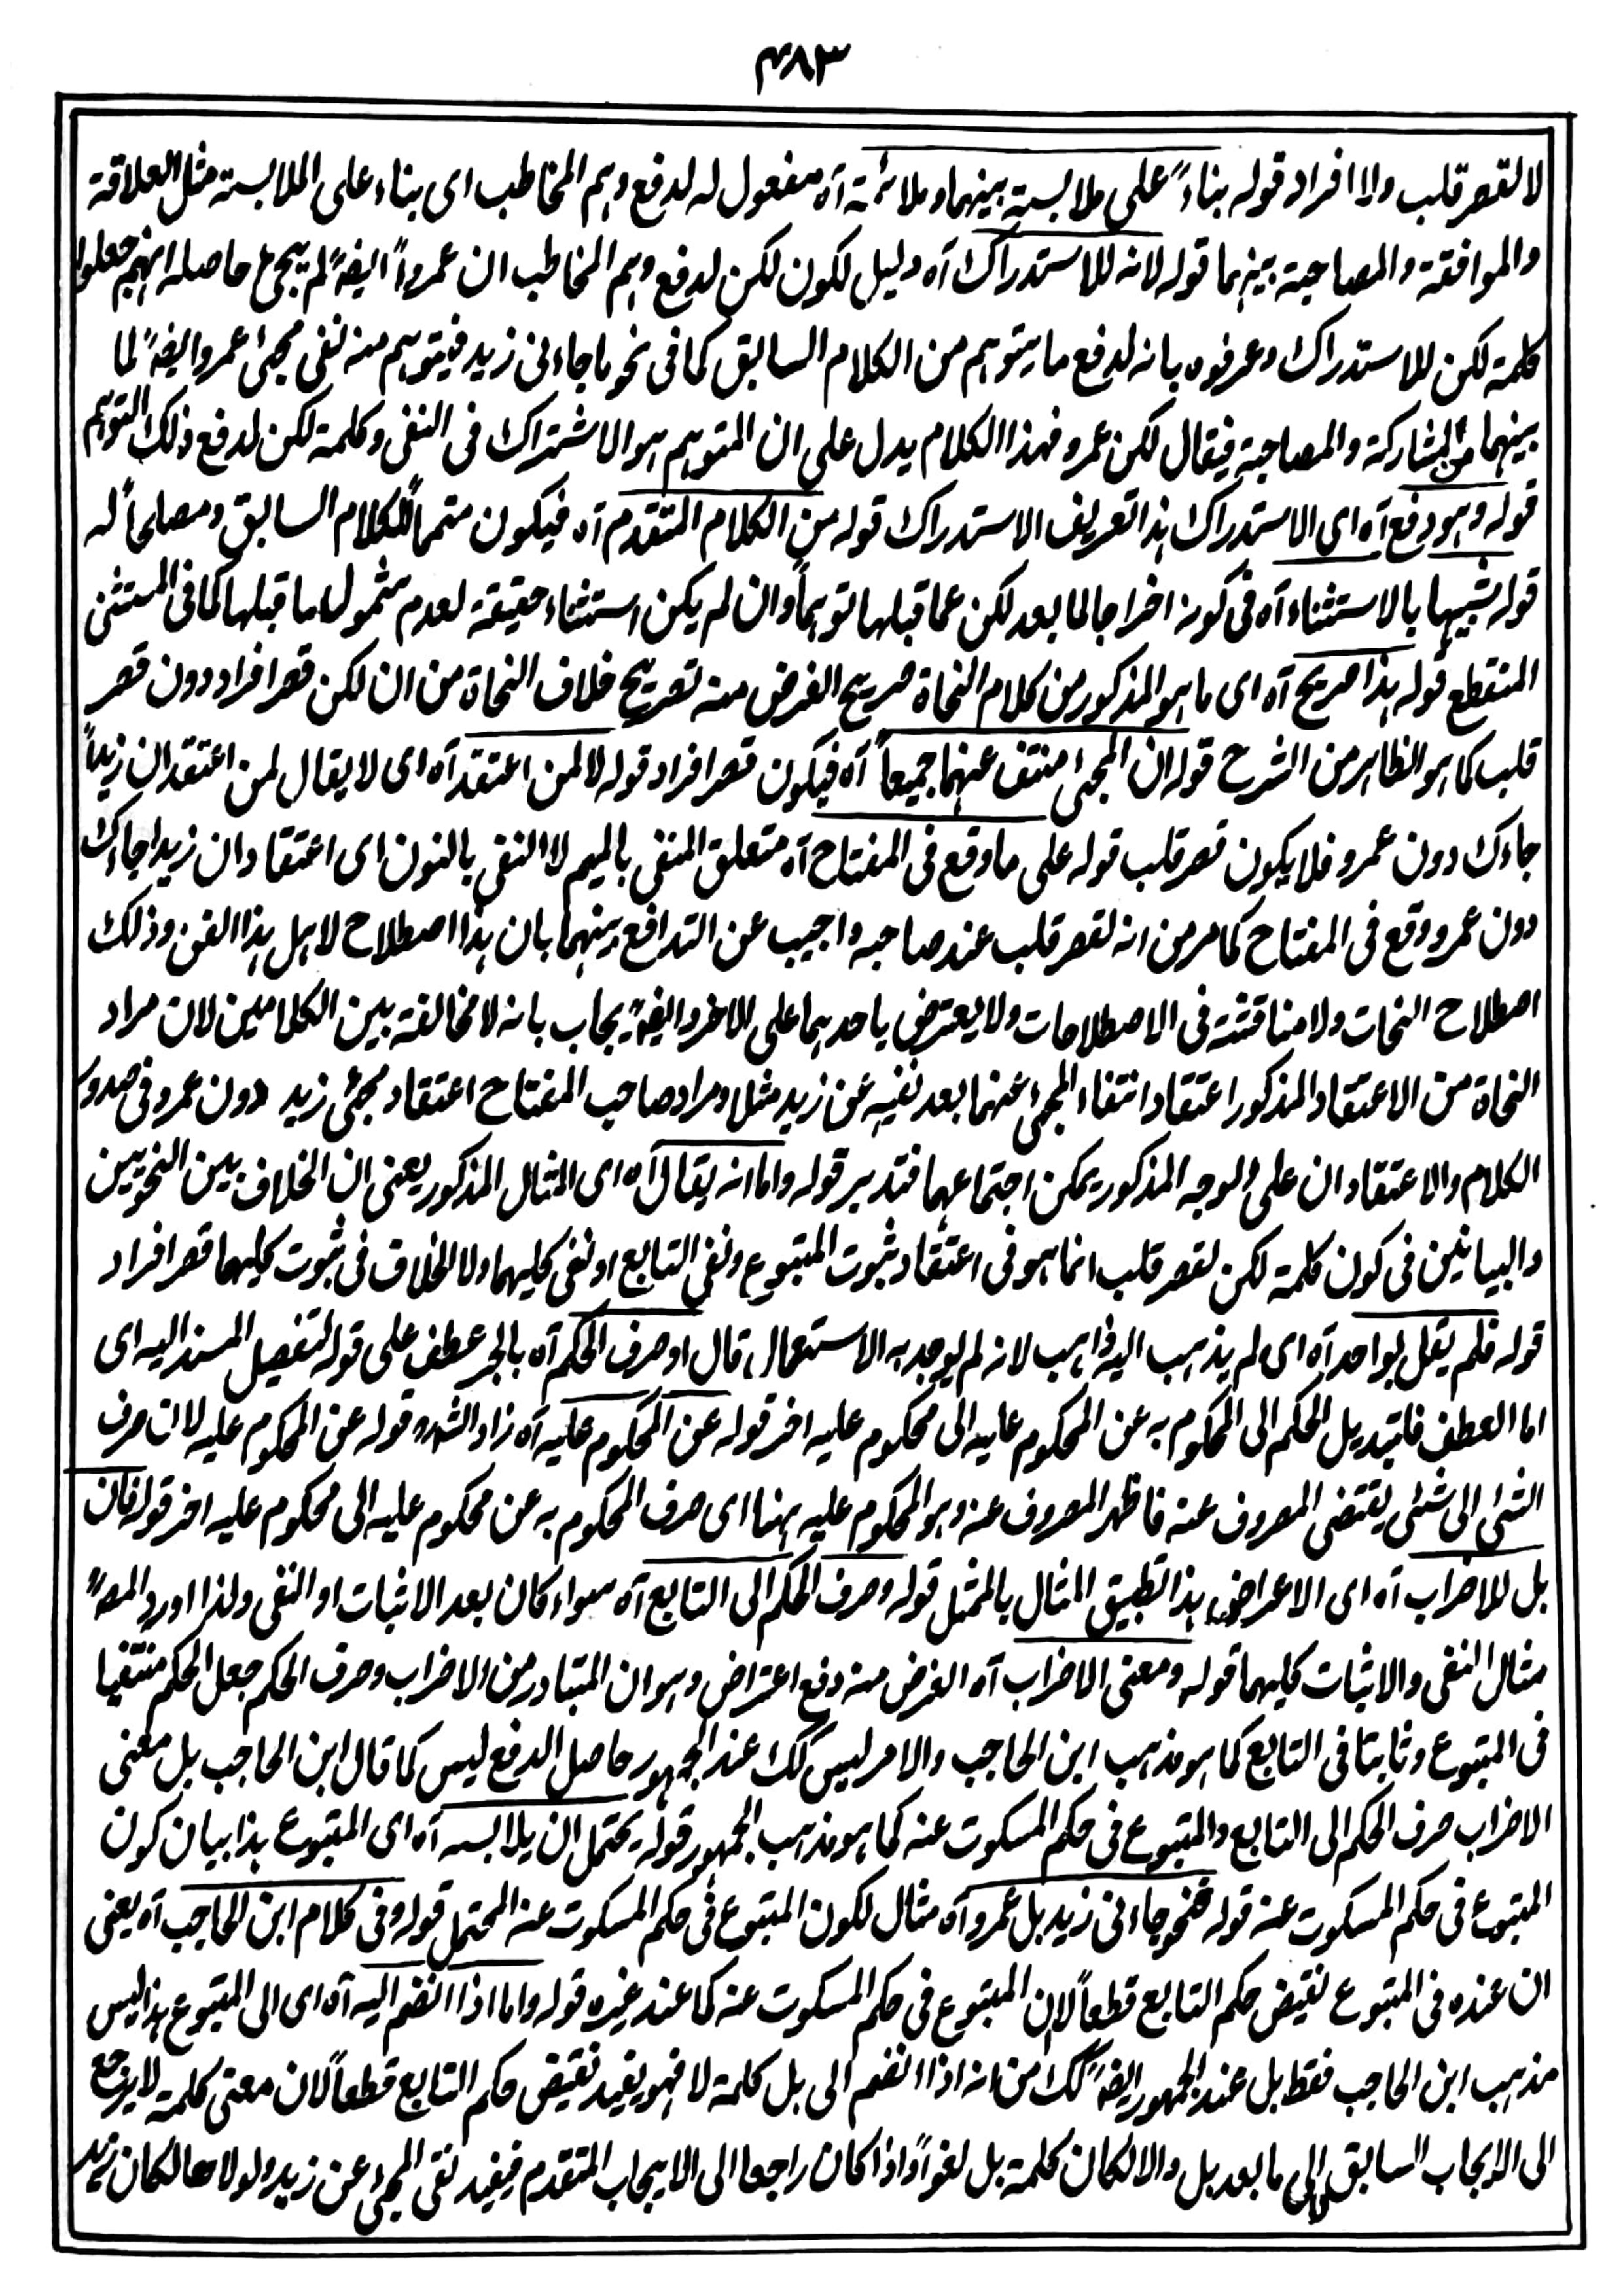 ۴۸۳
لا لقصر قلب ولا افراد قوله بناءً علی ملابسة بینهما وملائمة آه مفعول له لدفع وہم المخاطب ای بناء علی الملابسة مثل العلاقة
والموافقة والمصاحبة بینہما قوله لانه للاستدراک آه دلیل لکون لکن لدفع وہم المخاطب ان عمرواً ایضہً لم یجئ حاصله انہم جعلوا
کلمة لکن للاستدراک وعرفوه بانه لدفع ما یتوہم من الکلام السابق کما فی نحو ما جاءنی زید فیتوہم منه نفی مجئ عمرو ایضہً لما
بینہما من المشارکة والمصاحبة فیقال لکن عمرو فہذا الکلام یدل علی ان المتوہم ہو الاشتراک فی النفی وکلمة لکن لدفع ذلک التوہم
قوله وہو دفع آه ای الاستدراک ہذا تعریف الاستدراک قوله من الکلام المتقدم آه فیکون متمماً للکلام السابق ومصلحاً له
قوله شبیہا بالاستثناء آه فی کونه اخراجا لما بعد لکن عما قبلہا توہماً وان لم یکن استثناء حقیقة لعدم شمولہا ما قبلہا کما فی المستثنی
المنقطع قوله ہذا صریح آه ای ما ہو المذکور من کلام النحاة صریح الغرض منه تصریح خلاف النحاة من ان لکن قصر افراد دون قصر
قلب کما ہو الظاہر من الشرح قوله ان المجئ منتف عنہما جمیعاً آه فیکون قصر افراد قوله لا لمن اعتقد آه ای لا یقال لمن اعتقد ان زیداً
جاءک دون عمرو فلا یکون قصر قلب قوله علی ما وقع فی المفتاح آه متعلق المنفی بالمیم لا النفی بالنون ای اعتقاد ان زیدا جاءک
دون عمرو وقع فی المفتاح کما مر من انه لقصر قلب عند صاحبه واجیب عن التدافع بینہما بان ہذا اصطلاح لاہل ہذا الفن وذلک
اصطلاح النحات ولا مناقشة فی الاصطلاحات ولا یعترض باحدہما علی الاخر وایضہً یجاب بانه لا مخالفة بین الکلامین لان مراد
النحاة من الاعتقاد المذکور اعتقاد انتفاء المجئ عنہما بعد نفیه عن زید مثلا ومراد صاحب المفتاح اعتقاد مجئ زید دون عمرو فی صدور
الکلام والاعتقاد ان علی الوجه المذکور یمکن اجتماعہما فتدبر قوله واما انه یقال آه ای المثال المذکور یعنی ان الخلاف بین النحویین
والبیانیین فی کون کلمة لکن لقصر قلب انما ہو فی اعتقاد ثبوت المتبوع ونفی التابع او نفی کلیہما ولا الخلاف فی ثبوت کلیہما قصر افراد
قوله فلم یقل بواحد آه ای لم یذہب الیه ذاہب لانه لم یوجد به الاستعمال قال او صرف الحکم آه بالجر عطف علی قوله لتفصیل المسند الیه ای
اما العطف فلتبدیل الحکم الی المحکوم به عن المحکوم علیه الی محکوم علیه اخر قوله عن المحکوم علیه آه زاد الشہ قوله عن المحکوم علیه لان صرف
الشئ الی شئ یقتضی المصروف عنه فاظہر المصروف عنه وہو المحکوم علیه ہہنا ای صرف المحکوم به عن محکوم علیه الی محکوم علیه اخر قوله فان
بل للاضراب آه ای الاعراض ہذا تطبیق المثال بالممثل قوله وصرف الحکم الی التابع آه سواء کان بعد الاثبات او النفی ولذا اورد المصہ
مثال النفی والاثبات کلیہما قوله ومعنی الاضراب آه الغرض منه دفع اعتراض وہو ان المتبادر من الاضراب وصرف الحکم جعل الحکم منتفیا
فی المتبوع وثابتا فی التابع کما ہو مذہب ابن الحاجب والامر لیس کک عند الجمہور حاصل الدفع لیس کما قال ابن الحاجب بل معنی
الاضراب صرف الحکم الی التابع والمتبوع فی حکم المسکوت عنه کما ہو مذہب الجمہور قوله یحتمل ان یلابسه آه ای المتبوع ہذا بیان کون
المتبوع فی حکم المسکوت عنه قوله فنحو جاءنی زید بل عمرو آه مثال لکون المتبوع فی حکم المسکوت عنه المحتمل قوله وفی کلام ابن الحاجب آه یعنی
ان عنده فی المتبوع نقیض حکم التابع قطعاً لا ان المتبوع فی حکم المسکوت عنه کما عند غیره قوله واما اذا انضم الیه آه ای الی المتبوع ہذا لیس
مذہب ابن الحاجب فقط بل عند الجمہور ایضہً کک من انه اذا انضم الی بل کلمة لا فہو یفید نقیض حکم التابع قطعاً لان معنی کلمة لا یرجع
الی الایجاب السابق لا الی ما بعد بل والا لکان کلمة بل لغواً واذا کان راجعا الی الایجاب المتقدم فیفید نفی المجئ عن زید ولولا ها لکان زید